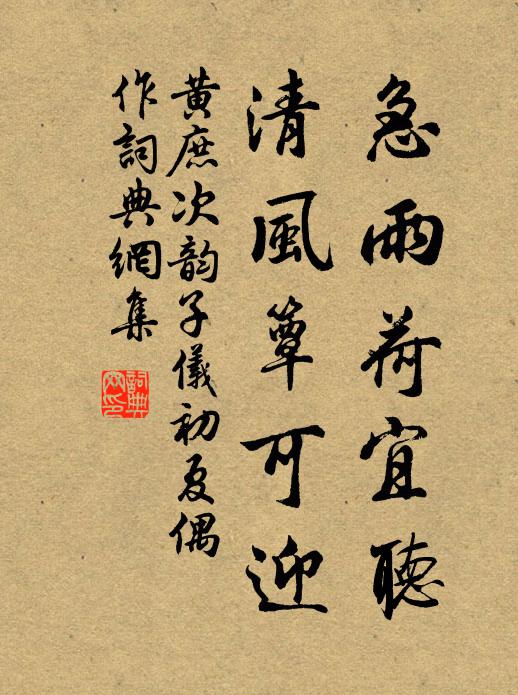 急雨荷宜聽
清風簟可迎
黃庶次韵子儀初夏偶
作詞典網集
詞典